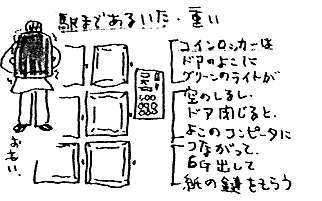 駅まであるいた・重い
コインロッカーは
ドアのよこに
グリーンのライトが
空のしるし。
ドア閉じると、
よこのコンピータに
つながって、
6G出して
紙の鍵をもらう
おもい、